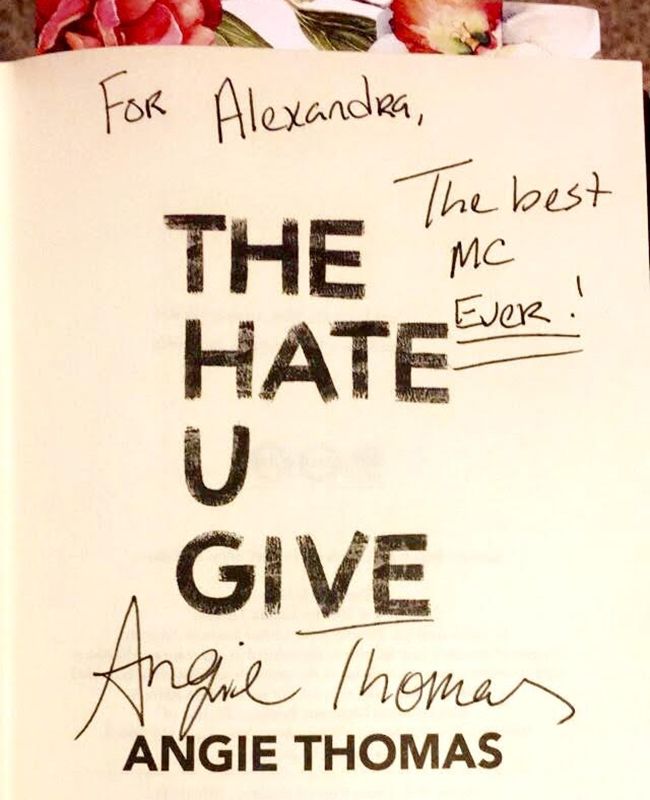 For Alexandra,
The best
MC
Ever!
THE
HATE
U
GIVE
Angie Thomas
ANGIE THOMAS